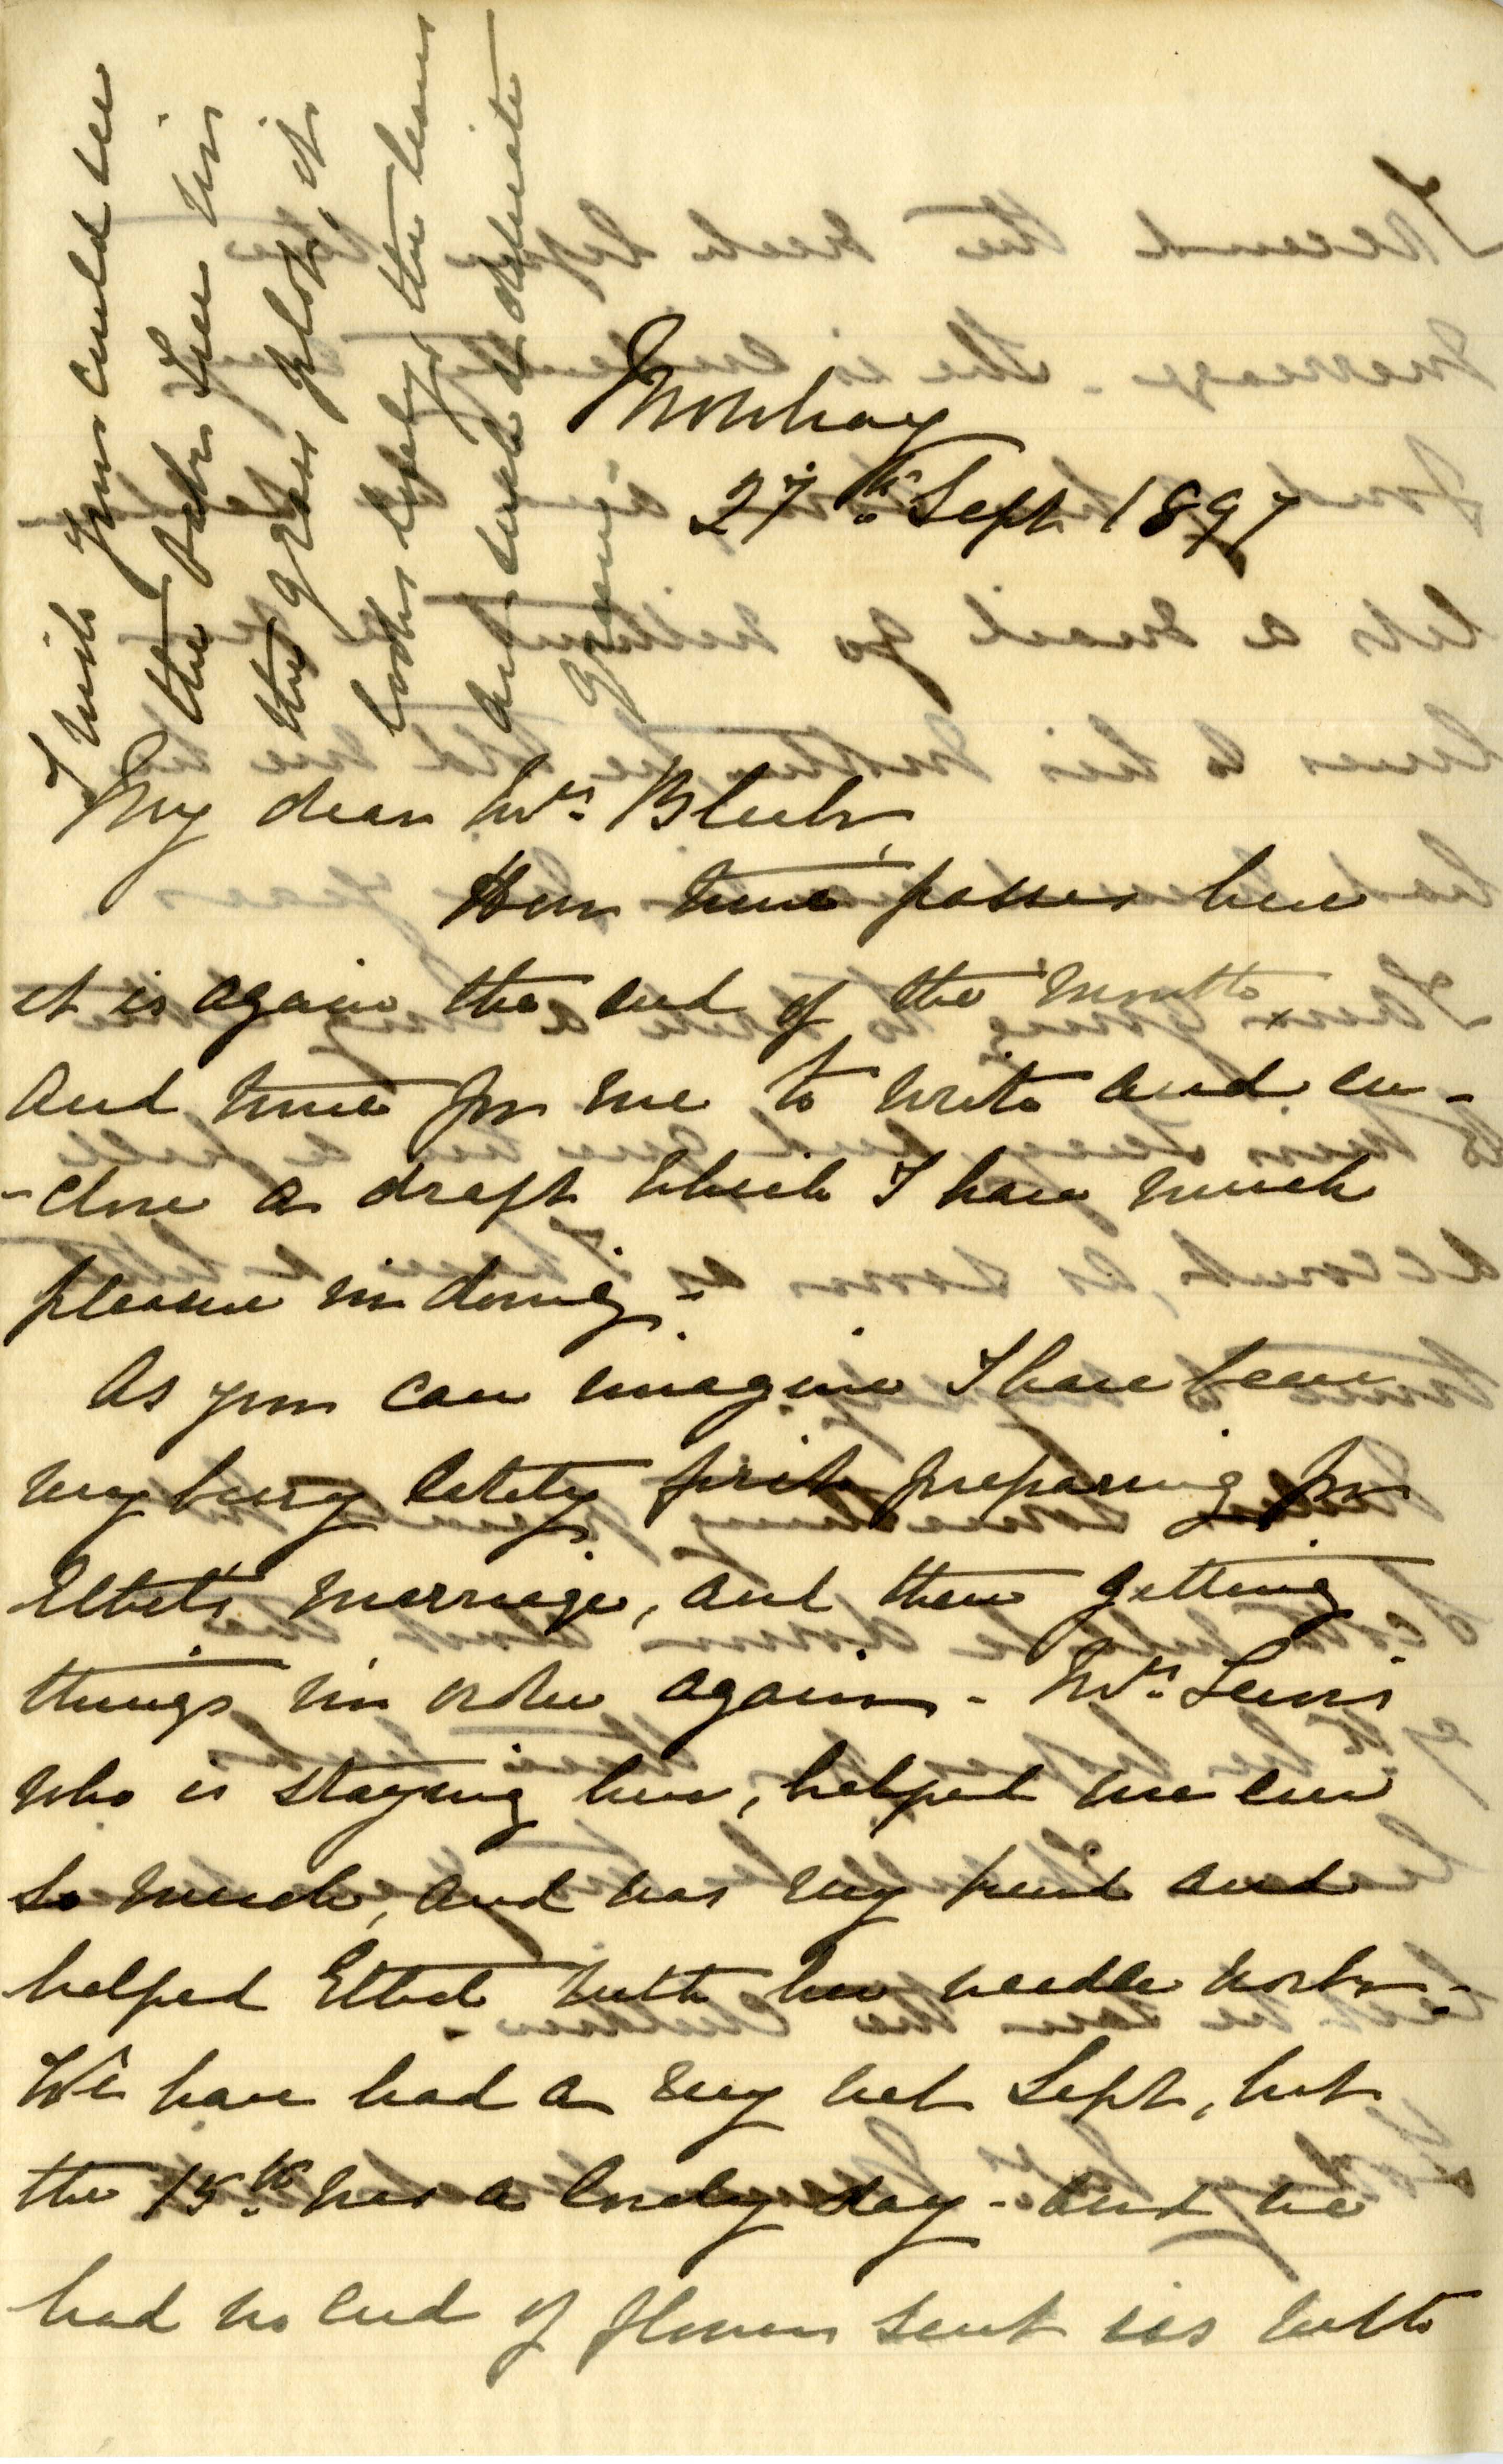 Mowbray
27th Sept 1897
My dear Mrs Bleek,
How time passes here
it is again the end of the month
and time for me to write and en-
-close a draft which I have much
pleasure in doing -
As you can imagine I have been
very busy lately first preparing for
Ethel's marriage, and then getting
things in order again - Mrs Lewis
who is staying here, helped me ever
so much, and was very kind and
helped Ethel with her needle work -
We have had a very wet Sept, but
the 15th was a lovely day - and we
had no end of flowers sent us with
I wish you could see
the oaks Tree in
the grass plot, it
looks lovely, the leaves
are such a delicate
green